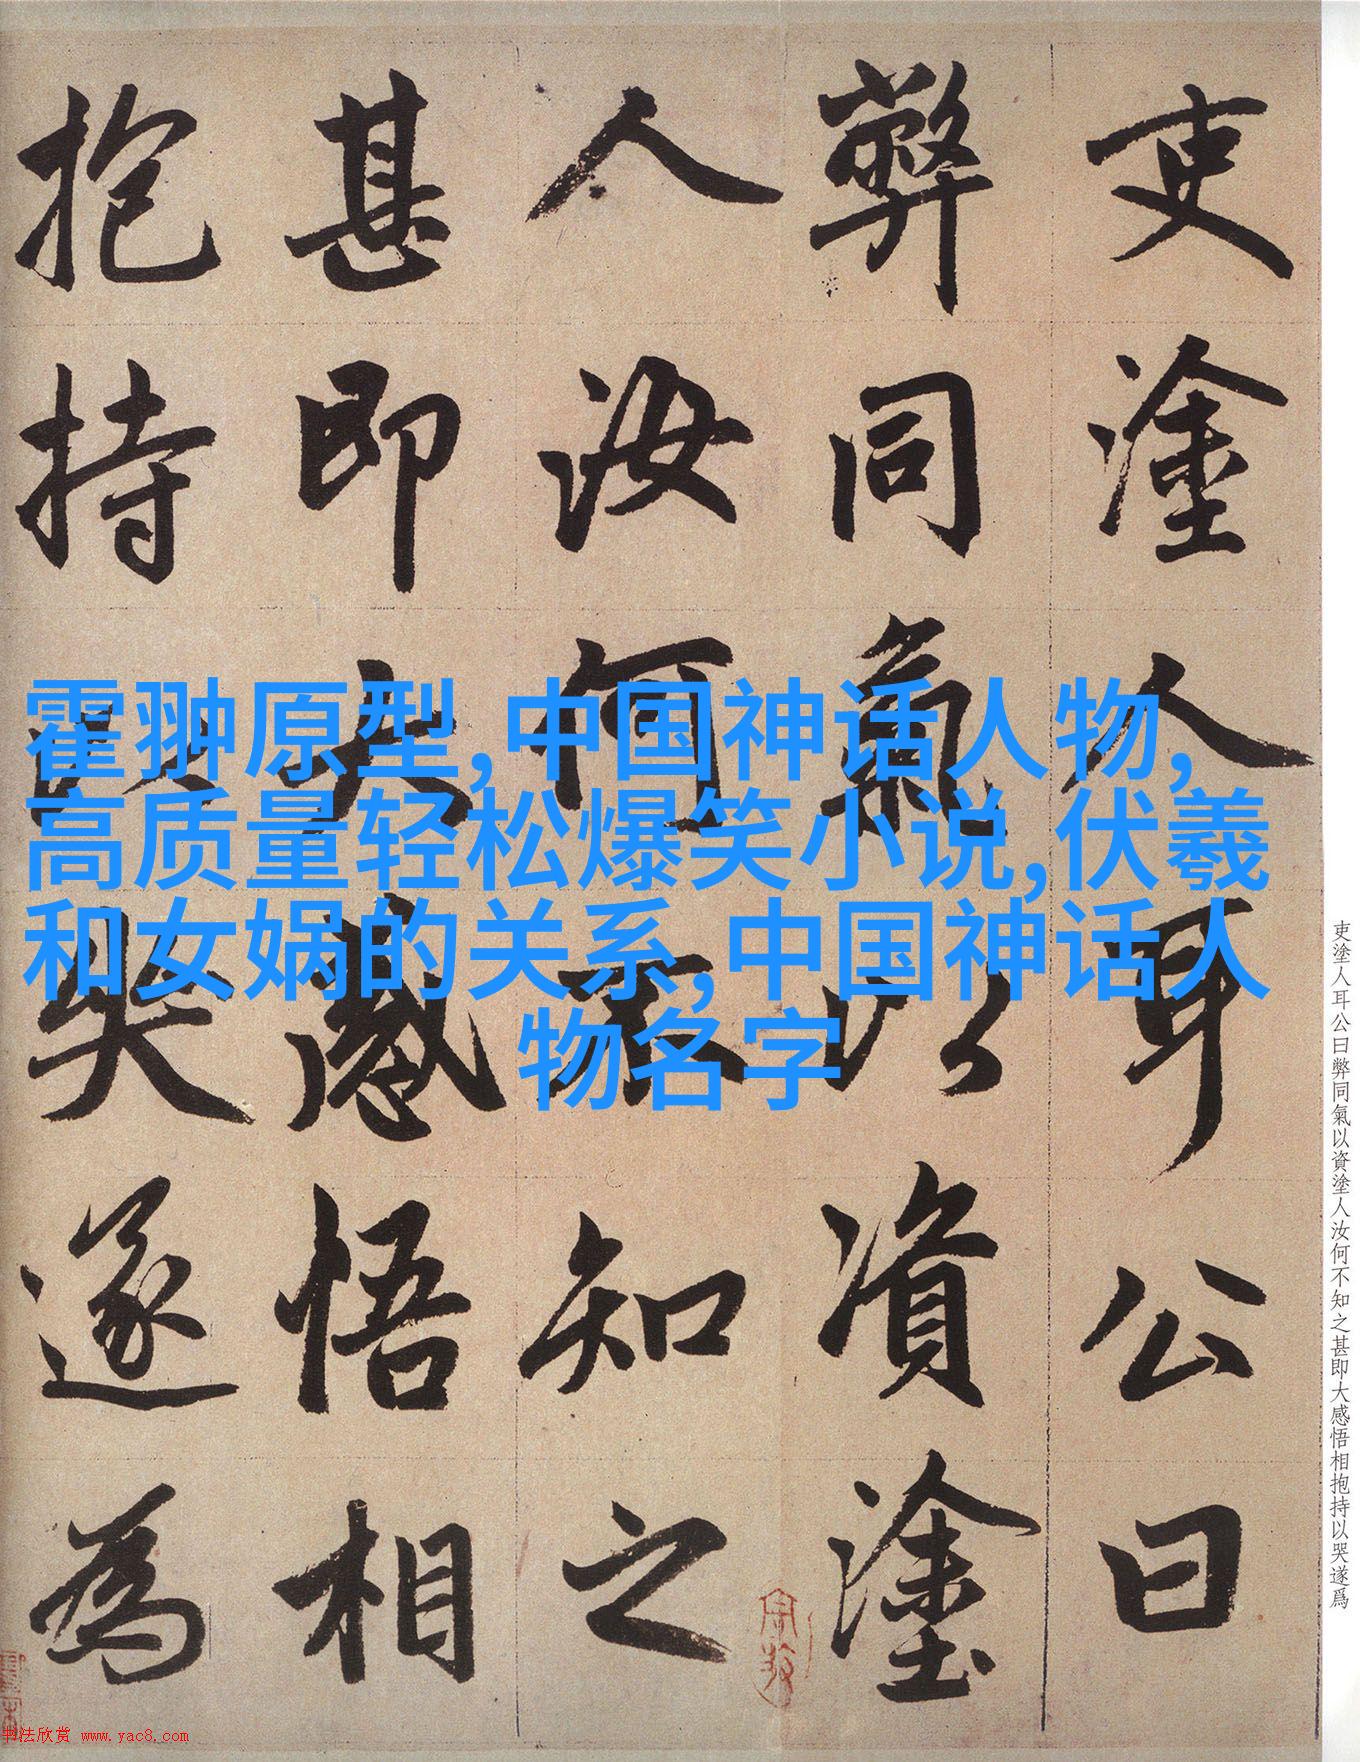 吏塗人耳公曰
弊同氣以資塗
人汝何不知之
甚即大感悟相
抱持以哭遂為
霍翀原型,中国神话人物,
高质量轻松爆笑小说,伏羲
和女娲的关系,中国神话人
物名字
吏塗人耳公曰弊同氣以資塗人汝何不知之甚即大感悟相抱持以哭遂爲
书法欣赏 www.yac8.com